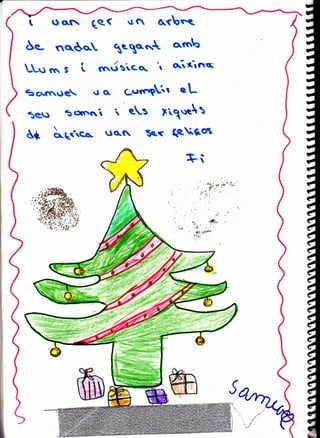 i van fer un arbre
de nadal gegant amb
llums i música i aixina
Samuel va cumplir el
seu somni i els xiquets
de àfrica van ser feliços
Fi
Samuel